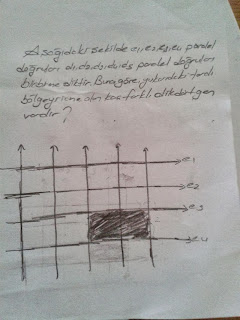 Aşağıdaki şekilde e1, e2, e3, e4 paralel
doğruları d1, d2, d3, d4, d5 paralel doğruları
birbirine diktir. Buna göre, yukarıdaki taralı
bölgeyi içine alan kaç farklı dikdörtgen
vardır?
e1
e2
e3
e4